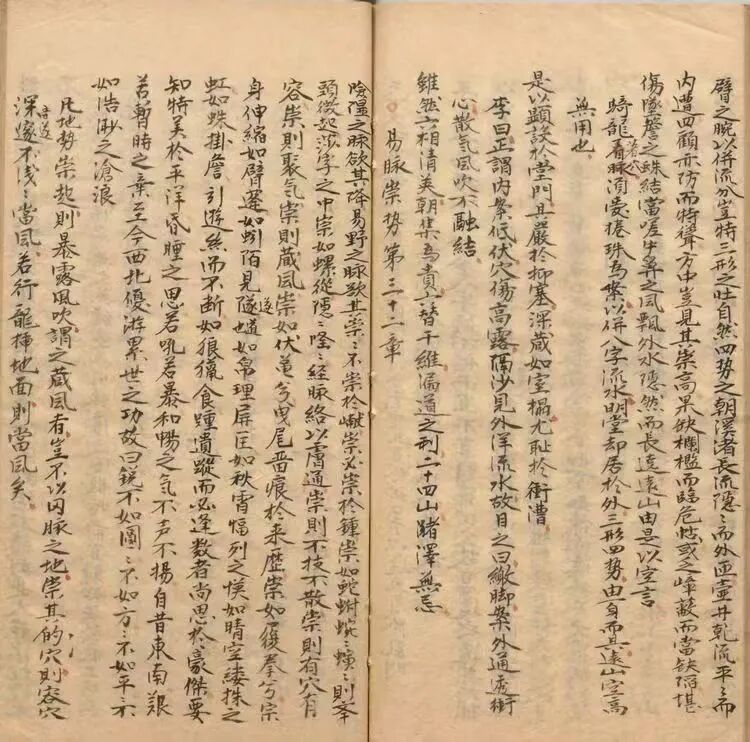 臂之腕以併流分豈特三形之吐自然四勢之朝溪渚長流隱〻而外㳌壺井乾流平〻而
内遭四顧亦防而特聳方中豈見其崇高果缺欄檻而臨危怯或之嶂蔽而當缺陷堪
傷墜簷之蛛結當嗟牛鼻之風飄外水隱然而長遶遠山由是以空言
騎龍看脉須要捲珠為案以併八字流水明堂却居於外三形四勢由身而其遠山空高
無用也
是以頭談於堂門其嚴於抑塞深藏如室榻尤恥於衝漕
李曰正謂内案低伏穴傷高露隔沙見外洋流水故目之曰繳脚案外通透衝
心散氣風吹不融結
雖然六相清美朝集為貴上替千維偏道之刑二十四山豬澤無忌
易脉崇势第三十二章
險隘之脉欲其降易野之脉欲其崇〻不崇於嶽崇必崇於鍾崇如蛇蚹蜿〻蟥〻則峯
頭微起莎字之中崇如螺從隱〻怪〻経脉絡以膚通崇則不技不散崇則有穴有
容崇則聚氣崇則藏風崇如伏黄兮曳尾晋痕於来歷崇如覆拳兮宗
身伸縮如臂薩如蚓陌見隧遂也道如帛理屏匡如秋霄幅列之悮如晴空縷抹之
虹如蛛掛詹引遊絲而不断如狼獵食踵遺蹤而必逢数者尚思於豪傑要
知特美於平洋昏睡之思若吼若暴和暢之氣不声不揚自昔東南艱
若暫時之棄至今西北優游累世之功故曰銳不如圓〻不如方〻不如平〻不
如浩渺之滄浪
凡地勢崇起則暴露風吹謂之藏風者豈不以内脉之地崇其的穴則容穴
深邃音遂不浅〻當風若行龍挿地面則當風矣